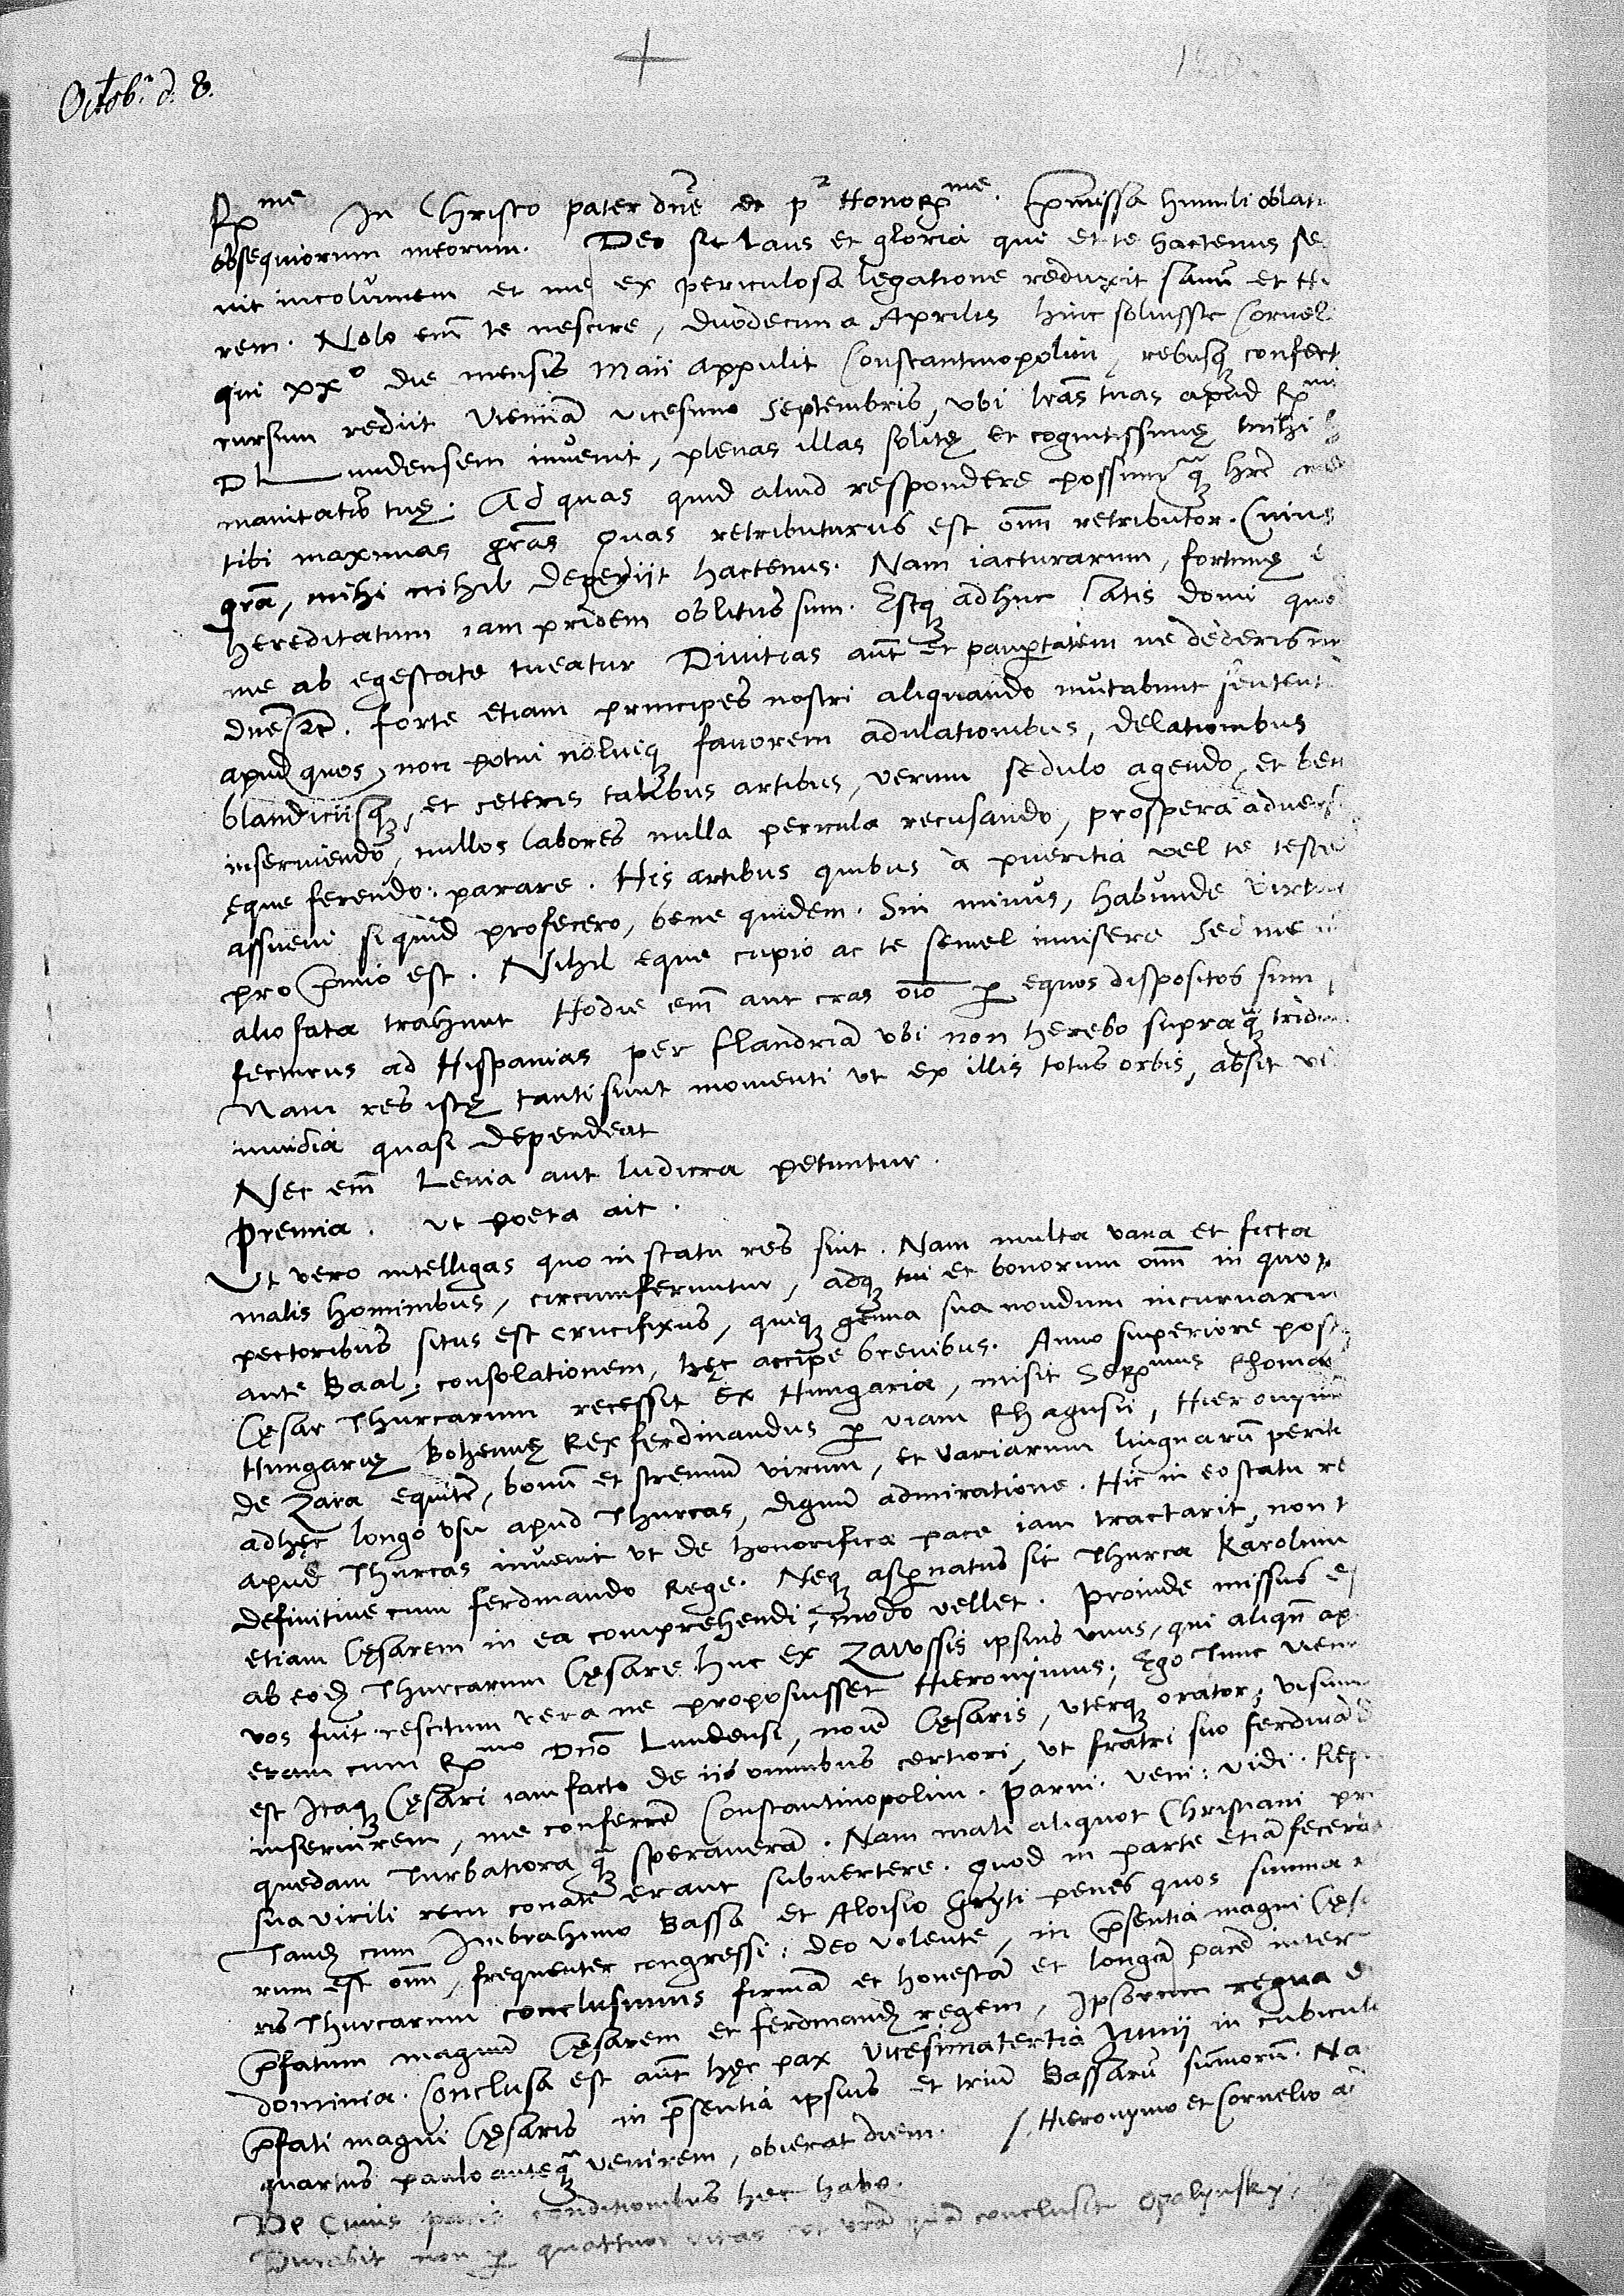 Octob. d. 8.
Rme In Christo pater dne et pr Honorme. Pmissa humili oblati
obsequiorum meorum. Deo sit laus et gloria que et te hactenus se
vit incolumem et me ex periculosa legatione reduxit sanu et
rem. Nolo enim te nescire, duodecima Aprilis hinc solvisse Cornel
qui xxo die mensis Maii appulit Constantinopolim, rebusq confect
cursim rediit Viennam vicesimo Septembris, ubi lras tuas apud Rmu
D Lundensem invenit, plenas illas solitę et cognitissimę mihi
manitatis tuę. Ad quas quid aliud respondere possum q hre me
tibi maximas gras quas retributurus est omn retributor. Cuius
gra, mihi nihil deperiit hactenus. Nam iacturarum, fortunę
hereditatum iam pridem oblitus sum. Estq adhuc satis domi quo
me ab egestate tueatur Divitias aut et paupertatem ne dederis
dne etc. forte etiam principes nostri aliquando mutabunt sentent
apud quos, non potui noluiq favorem adulationibus, delationibus
blandiciisq, et ceteris talibus artibus, verum sedulo agendo, et ben
inserviendo, nullos labores nulla pericula recusando, prospera adversa
eque ferendo: parare. His artibus quibus à pueritia vel te teste
assuevi si quid profecero, bene quidem. Sin minus, habunde virtus
pro pmio est. Nihil eque cupio ac te semel invisere Sed me
alio fata trahunt Hodie em aut cras oio p equos dispositos sum
fecturus ad Hispanias per Flandria ubi non herebo supraq tridu
Nam res istę tanti sunt momenti ut ex illis totus orbis, absit ve
invidia quasi dependeat
Nec em Levia aut ludicra petuntur.
Premia. ut poeta ait.
Ut vero intelligas quo in statu res sint. Nam multa vana et ficta
malis hominibus, circumferuntur, adq tui et bonorum omn in quor
pectoribus situs est crucifixus, quiq genua sua nondum incurvarun
ante Baal, consolationem, hęc accipe brevibus. Anno superiore post
Cęsar Thurcarum recessit ex Hungaria, misit Sermus Rhoma
Hungarię Bohemię Rex ferdinandus p viam Rhagusii, Hieronymu
de Zara equite, bonu et strenuu virum, et variarum linguaru perit
adhęc longo usu apud Thurcas, dignu admiratione. Hic in eo statu re
apud Thurcas invenit ut de honorifica pace iam tractarit, non t
definitive cum ferdinando Rege. Neq aspnatus sit Thurca Karolum
etiam Cęsarem in ea comprehendi, modo vellet. Proinde missus e
ab eod Thurcarum Cęsare huc ex Zawssis ipsius unus, qui aliqn ap
vos fuit rescitum vera ne proposuisset Hieronymus, Ego tunc vien
eram cum Rmo Dno Lundensi, noie Cęsaris, uterq orator, visum
est Itaq Cęsari iam facto de iis omnibus certiori, ut fratri suo ferdinan
inservirem, me conferre Constantinopolim. Parui. Veni: Vidi. Rep
quedam turbatiora q speraveram. Nam mali aliquot Christiani pr
sua virili rem conati erant subvertere. Quod in parte etia fecera
Tand cum Imbrahimo Bassa et Aloisio Gryti penes quos summa r
rum est omn, frequenter congressi: deo volente, in psentia magni Cęsa
ris Thurcarum conclusimus firma et honesta et longa pace inter
pfatum magnu Cęsarem et ferdinand regem, Ipsorum regna e
dominia. Conclusa est aut hęc pax vicesimatertia Junij in cubicul
pfati magni Cęsaris in psentia ipsius et triu Bassaru summoru. Na
quartus paulo anteq venirem, obierat diem. /. Hieronymo et Cornelio a
De Cuius pacis conditionibus hec habe.
Durabit non p quattuor vitas ut vra qua conclusit Opalynsky,